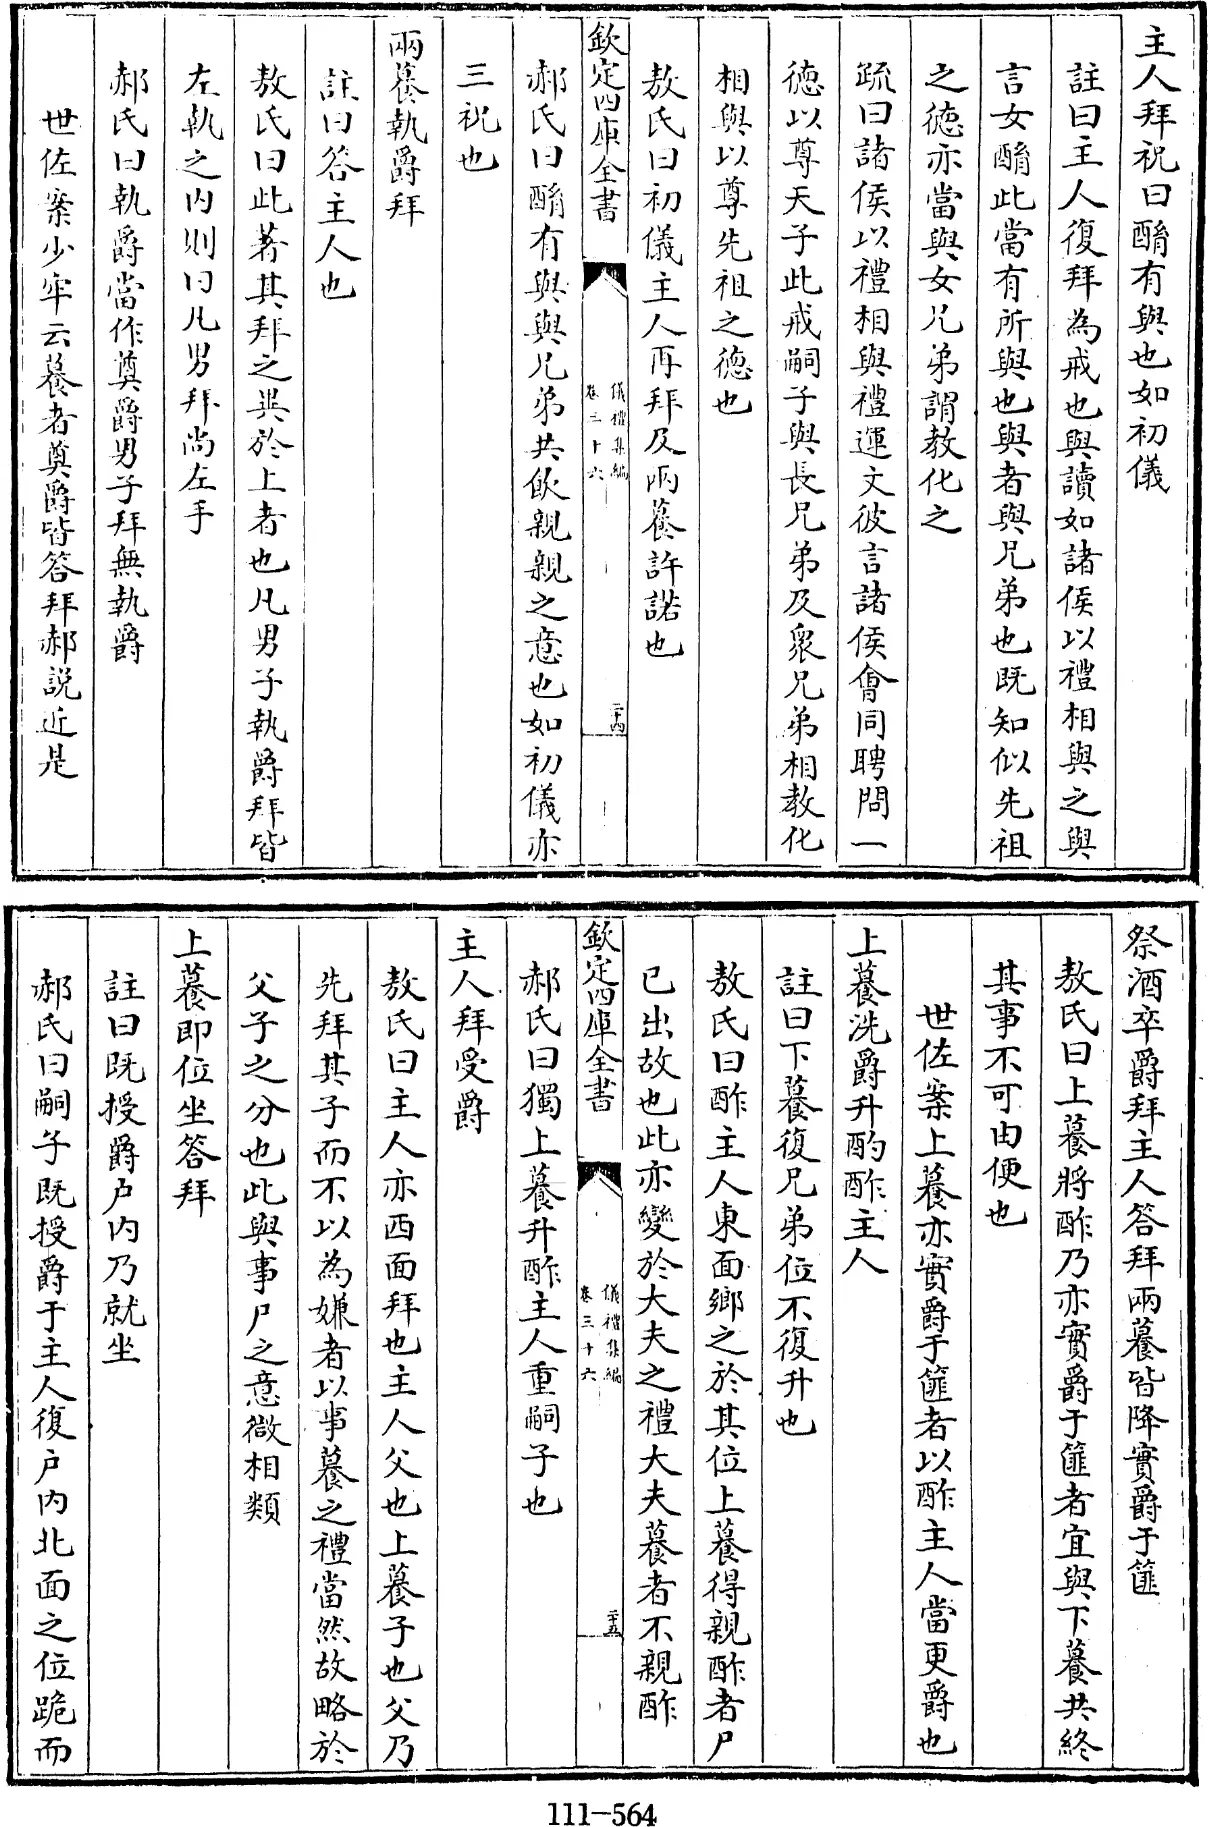 主人拜祝曰酳有與也如初儀
註曰主人復拜為戒也與讀如諸侯以禮相與之與
言女酳此當有所與也與者與兄弟也既知似先祖
之徳亦當與女兄弟謂教化之
疏曰諸侯以禮相與禮運文彼言諸侯會同聘問一
徳以尊天子此戒嗣子與長兄弟及衆兄弟相教化
相與以尊先祖之徳也
敖氏曰初儀主人再拜及兩養許諾也
欽定四庫全書
儀禮集編
卷三十六
二十四
郝氏曰酳有與與兄弟共飲親親之意也如初儀亦
三祝也
兩養執爵拜
註曰答主人也
敖氏曰此著其拜之異於上者也凡男子執爵拜皆
左執之内則曰凡男拜尚左手
郝氏曰執爵當作奠爵男子拜無執爵
世佐案少牢云養者奠爵皆答拜郝説近是
祭酒卒爵拜主人答拜兩養皆降實爵于篚
敖氏曰上養將酢乃亦實爵于篚者宜與下養共終
其事不可由便也
世佐案上養亦實爵于篚者以酢主人當更爵也
上養洗爵升酌酢主人
註曰下養復兄弟位不復升也
敖氏曰酢主人東面鄉之於其位上養得親酢者尸
已出故也此亦變於大夫之禮大夫養者不親酢
欽定四庫全書
儀禮集編
卷三十六
二十五
郝氏曰獨上養升酢主人重嗣子也
主人拜受爵
敖氏曰主人亦西面拜也主人父也上養子也父乃
先拜其子而不以為嫌者以事養之禮當然故略於
父子之分也此與事尸之意微相類
上養即位坐答拜
註曰既授爵户内乃就坐
郝氏曰嗣子既授爵于主人復户内北面之位跪而
111-564